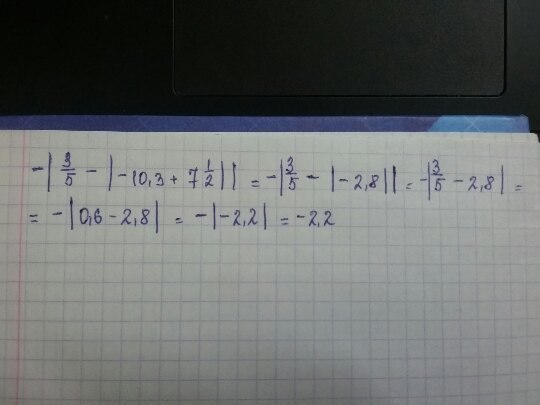 -|3/5 - |-10,3 + 7 1/2|| = -|3/5 - |-2,8|| = -|3/5 - 2,8| =
= -|0,6 - 2,8| = -|-2,2| = -2,2